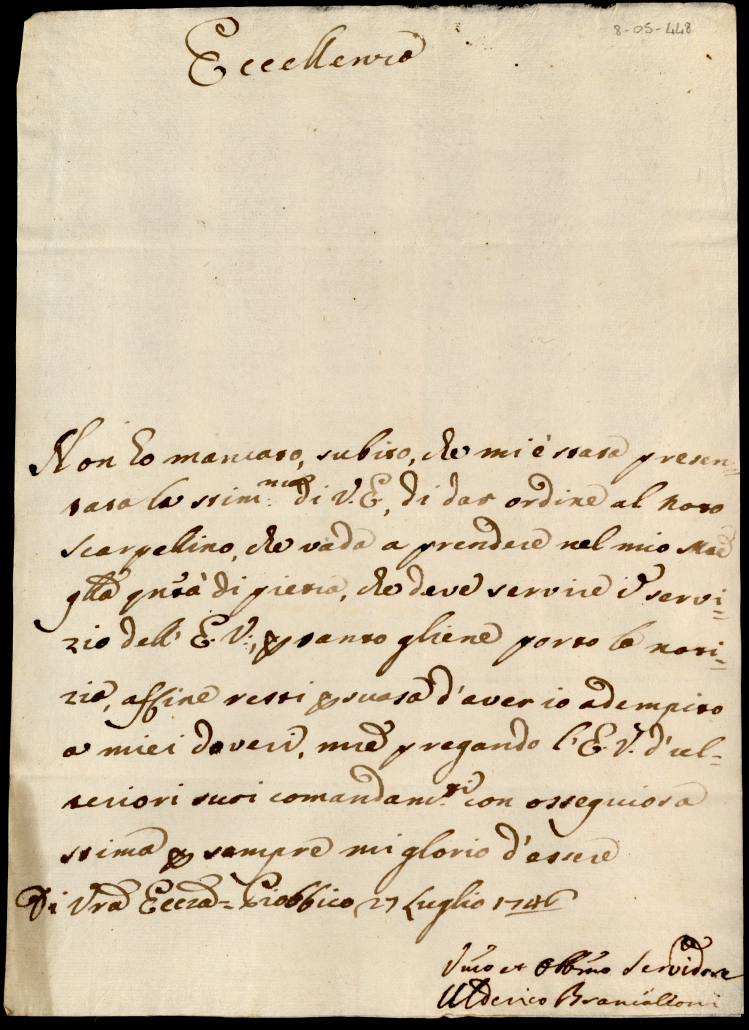 8-05-448
Eccellenza
Non ho mancato, subito, che mi è stata presen=
tata la stim.ma di V.E, di dar ordine al noto
Scarpellino, che vada a prendere nel mio
qlla qntà di pietra, che deve servire servi=
zio dell' E.V:, p tanto gliene porto la noti=
zia, affine resti psuasa d'aver io adempito
a miei doveri, mee pregando l'E.V. d'ul=
teriori suoi comandam.ti con ossequiosa
stima p sempre mi glorio d'essere
Di Vra Ecczà= Piobbico 27 Luglio 1746
Vmo et Obbmo Servidore
Ulderico Brancalleoni